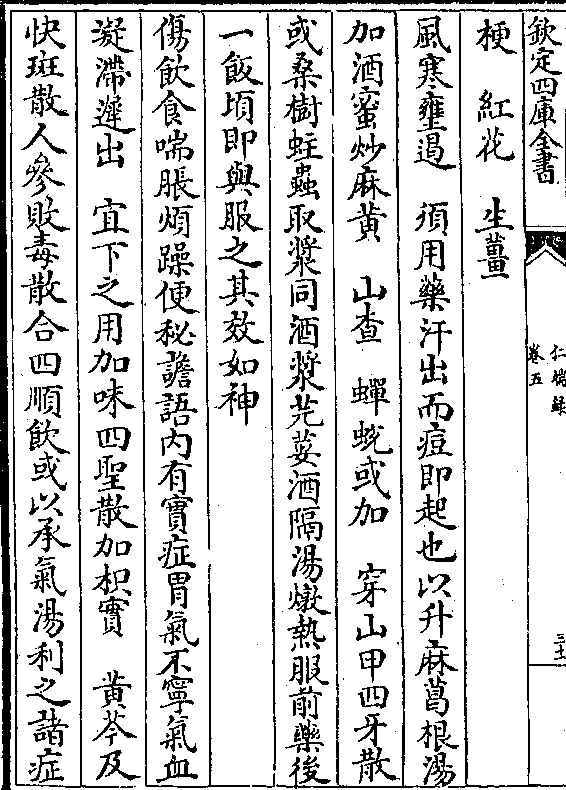 欽定四庫全書
仁端錄
卷五
梗　紅花　生薑
風寒壅遏　須用藥汗出而痘即起也以升麻葛根湯
加酒蜜炒麻黃　山查　蟬蛻或加　穿山甲四牙散
或桑樹蛀蟲取漿同酒漿芫荽酒隔湯燉熱服前藥後
一飯頃即與服之其效如神
傷飲食喘脹煩躁便秘譫語內有實症胃氣不寧氣血
凝滯遲出　宜下之用加味四聖散加枳實　黃芩及
快斑散人參敗毒散合四順飲或以承氣湯利之諸症